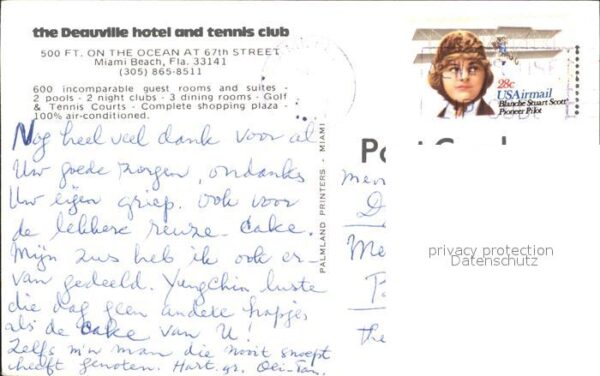 the Deauville hotel and tennis club
500 FT. ON THE OCEAN AT 67th STREET
Miami Beach, Fla. 33141
(305) 865-8511
600 incomparable guest rooms and suites -
2 pools - 2 night clubs - 3 dining rooms - Golf
& Tennis Courts - Complete shopping plaza -
100% air-conditioned.
Nog heel veel dank voor al
Uw goede zorgen, ondanks
Uw eigen griep. Ook voor
de lekkere reuze-cake.
Mijn zus heb ik ook er-
van gedeeld. YungChin lustte
die dag geen andere hapjes
als de cake van U!
Zelfs m'n man die nooit snoept
heeft genoten. Hart. gr. Oei-Tan.
PALMLAND PRINTERS - MIAMI
28c
USAirmail
Blanche Stuart Scott
Pioneer Pilot
Po
Me
the
privacy protection
Datenschutz